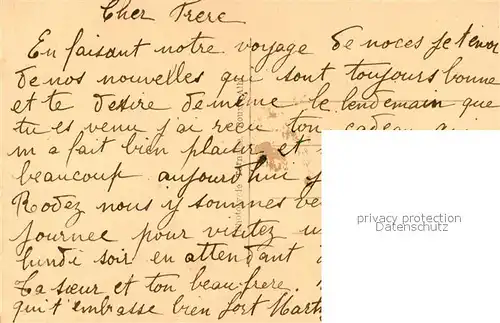 Cher Frere
En faisant notre voyage de noces je t'envoi
de nos nouvelles qui sont toujours bonne
et te desire de même le lendemain que
tu es venu j'ai reçu ton cadeau qui
m a fait bien plaisir et
beaucoup aujourd'hui
Rodez nous y sommes
journee pour visitez
lundi soir en attendant
ta sœur et ton beau-frere.
qui t'embrasse bien fort Marth
privacy protection
Datenschutz